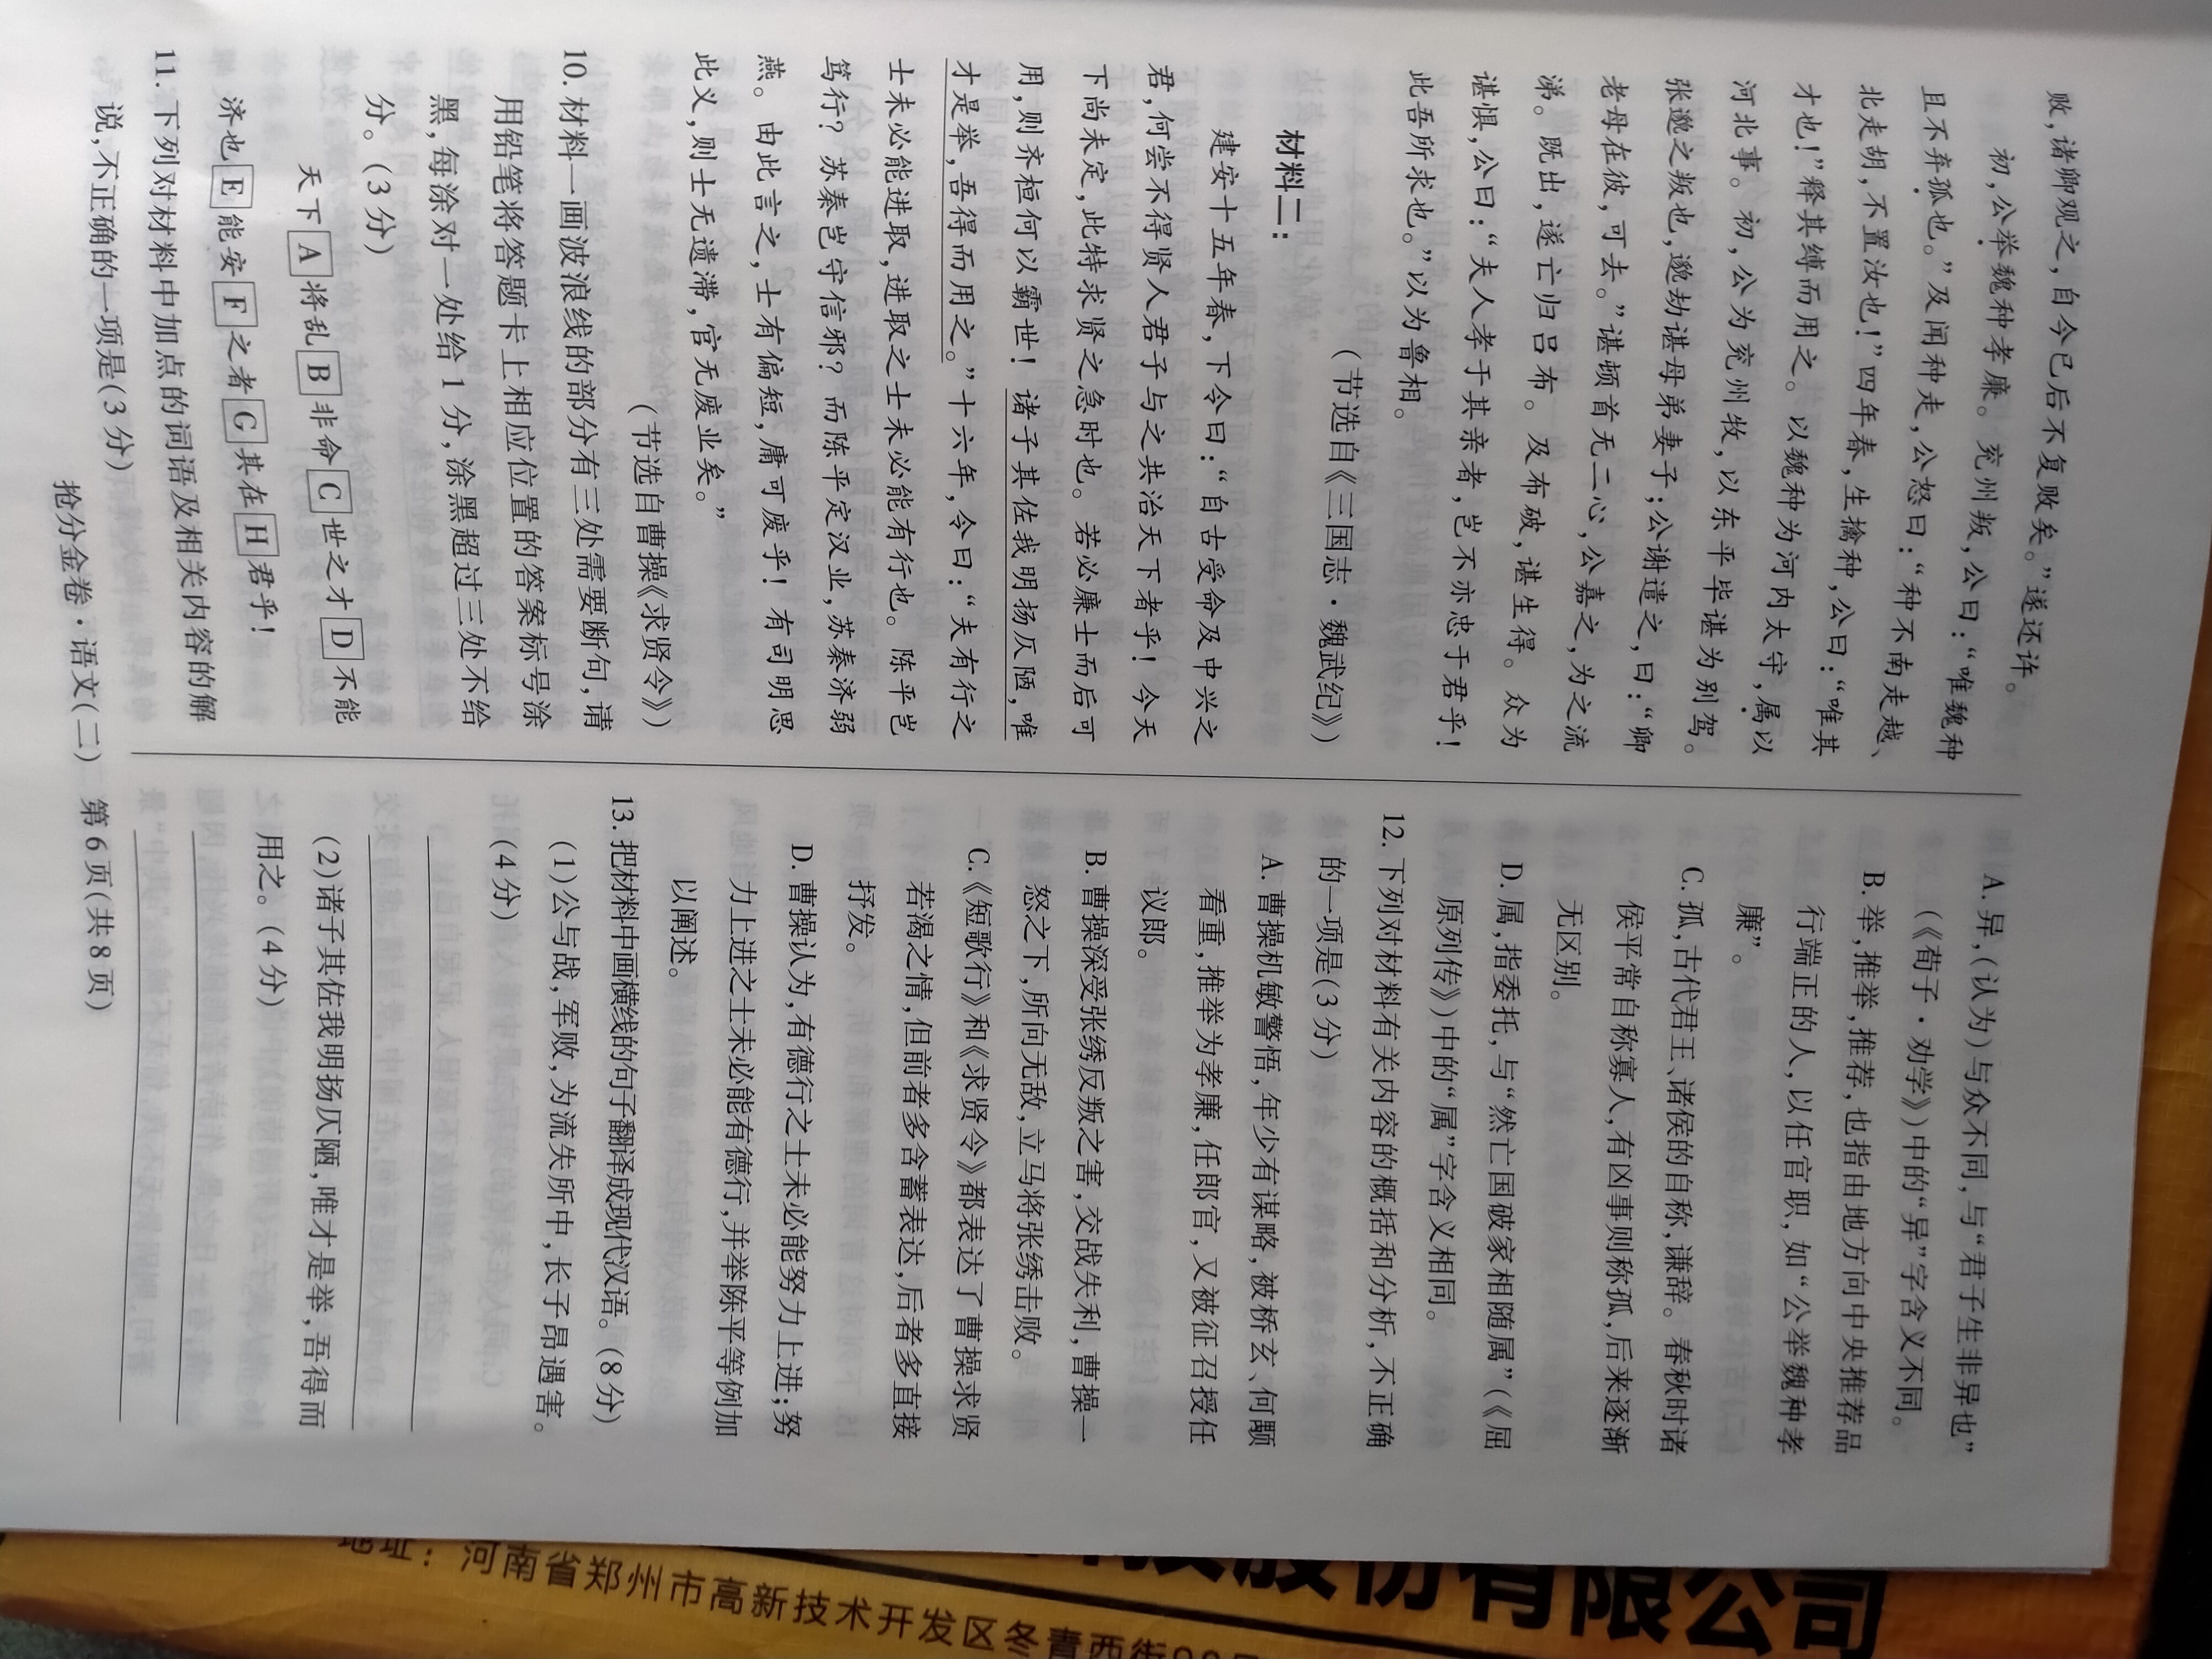 败，诸卿观之，自今已后不复败矣。”遂还许。
初，公举魏种孝廉。兖州叛，公曰：“唯魏种
且不弃孤也。”及闻种走，公怒曰：“种不南走越、
北走胡，不置汝也！”四年春，生擒种，公曰：“唯其
才也！”释其缚而用之。以魏种为河内太守，属以
河北事。初，公为兖州牧，以东平毕谌为别驾。
张邈之叛也，邈劫谌母弟妻子；公谢遣之，曰：“卿
老母在彼，可去。”谌顿首无二心，公嘉之，为之流
涕。既出，遂亡归吕布。及布破，谌生得。众为
谌惧，公曰：“夫人孝于其亲者，岂不亦忠于君乎！
此吾所求也。”以为鲁相。
（节选自《三国志·魏武纪》）
材料二：
建安十五年春，下令曰：“自古受命及中兴之
君，何尝不得贤人君子与之共治天下者乎！今天
下尚未定，此特求贤之急时也。若必廉士而后可
用，则齐桓何以霸世！诸子其佐我明扬仄陋，唯
才是举，吾得而用之。”十六年，令曰：“夫有行之
士未必能进取，进取之士未必能有行也。陈平岂
笃行？苏秦岂守信邪？而陈平定汉业，苏秦济弱
燕。由此言之，士有偏短，庸可废乎！有司明思
此义，则士无遗滞，官无废业矣。”
（节选自曹操《求贤令》）
10. 材料一画波浪线的部分有三处需要断句，请
用铅笔将答题卡上相应位置的答案标号涂
黑，每涂对一处给1分，涂黑超过三处不给
分。（3分）
天下A将乱B非命C世之才D不能
济也E能安F之者G其在H君乎！
11. 下列对材料中加点的词语及相关内容的解
说，不正确的一项是（3分）
A. 异，（认为）与众不同，与“君子生非异也”
（《荀子·劝学》）中的“异”字含义不同。
B. 举，推举，推荐，也指由地方向中央推荐品
行端正的人，以任官职，如“公举魏种孝
廉”。
C. 孤，古代君王、诸侯的自称，谦辞。春秋时诸
侯平常自称寡人，有凶事则称孤，后来逐渐
无区别。
D. 属，指委托，与“然亡国破家相随属”（《屈
原列传》）中的“属”字含义相同。
12. 下列对材料有关内容的概括和分析，不正确
的一项是（3分）
A. 曹操机敏警悟，年少有谋略，被桥玄、何颙
看重，推举为孝廉，任郎官，又被征召授任
议郎。
B. 曹操深受张绣反叛之害，交战失利，曹操一
怒之下，所向无敌，立马将张绣击败。
C.《短歌行》和《求贤令》都表达了曹操求贤
若渴之情，但前者多含蓄表达，后者多直接
抒发。
D. 曹操认为，有德行之士未必能努力上进；努
力上进之士未必能有德行，并举陈平等例加
以阐述。
13. 把材料中画横线的句子翻译成现代汉语。（8分）
（1）公与战，军败，为流矢所中，长子昂遇害。
（4分）
（2）诸子其佐我明扬仄陋，唯才是举，吾得而
用之。（4分）
抢分金卷·语文（二） 第6页（共8页）
地址：河南省郑州市高新技术开发区冬青西街
股份有限公司